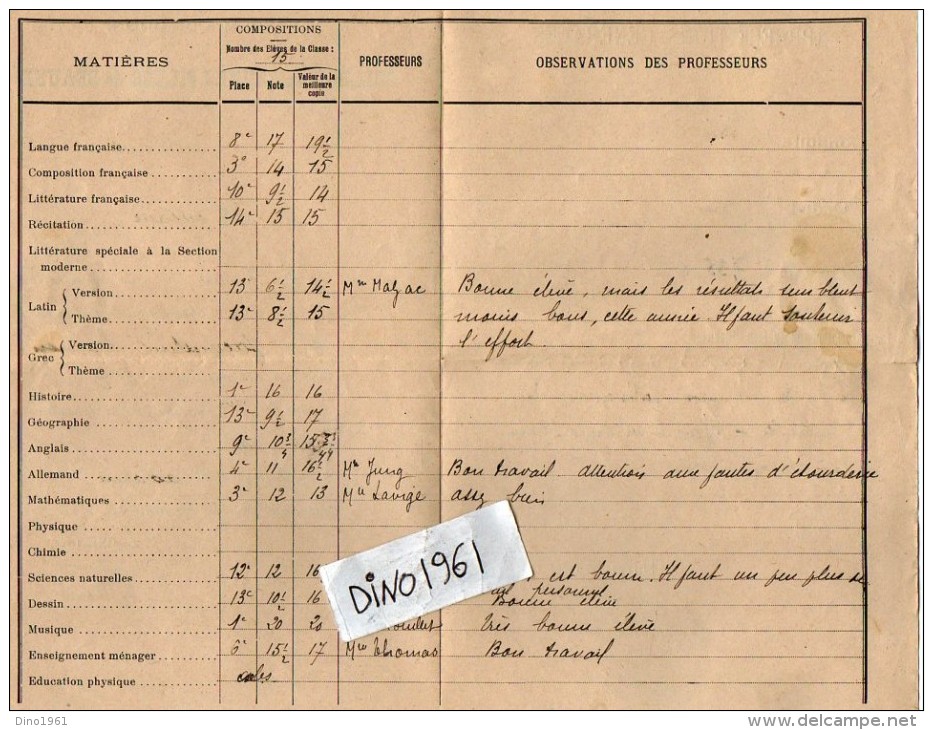 MATIÈRES COMPOSITIONS PROFESSEURS OBSERVATIONS DES PROFESSEURS
Nombre des Elèves de la Classe :
15
Place Note Valeur de la meilleure copie
Langue française 8e 17 19 1/2
Composition française 3e 14 15
Littérature française 10e 9 1/2 14
Récitation 14e 15 15
Littérature spéciale à la Section
moderne
Latin Version 13e 6 1/2 14 1/2 Bonne élève, mais les résultats semblent
Thème 13e 8 1/2 15 moins bons, cette année Il faut soutenir
l'effort.
Grec Version
Thème
Histoire 1e 16 16
Géographie 13e 9 1/2 17
Anglais 9e 10 3/4
Allemand 4e 11 16 1/2 Jung Bon travail attention aux fautes d'étourderie
Mathématiques 3e 12 13 Mlle Lavige assez bien
Physique
Chimie
Sciences naturelles 12e 12 16 est bonne. Il faut un peu plus de
personnel
Dessin 13e 10 1/2 16 Bonne élève
Musique 1e 20 20 Très bonne élève
Enseignement ménager 6e 15 1/2 17 Thomas Bon travail
Education physique
DINO1961
Dino1961
delcampe.net